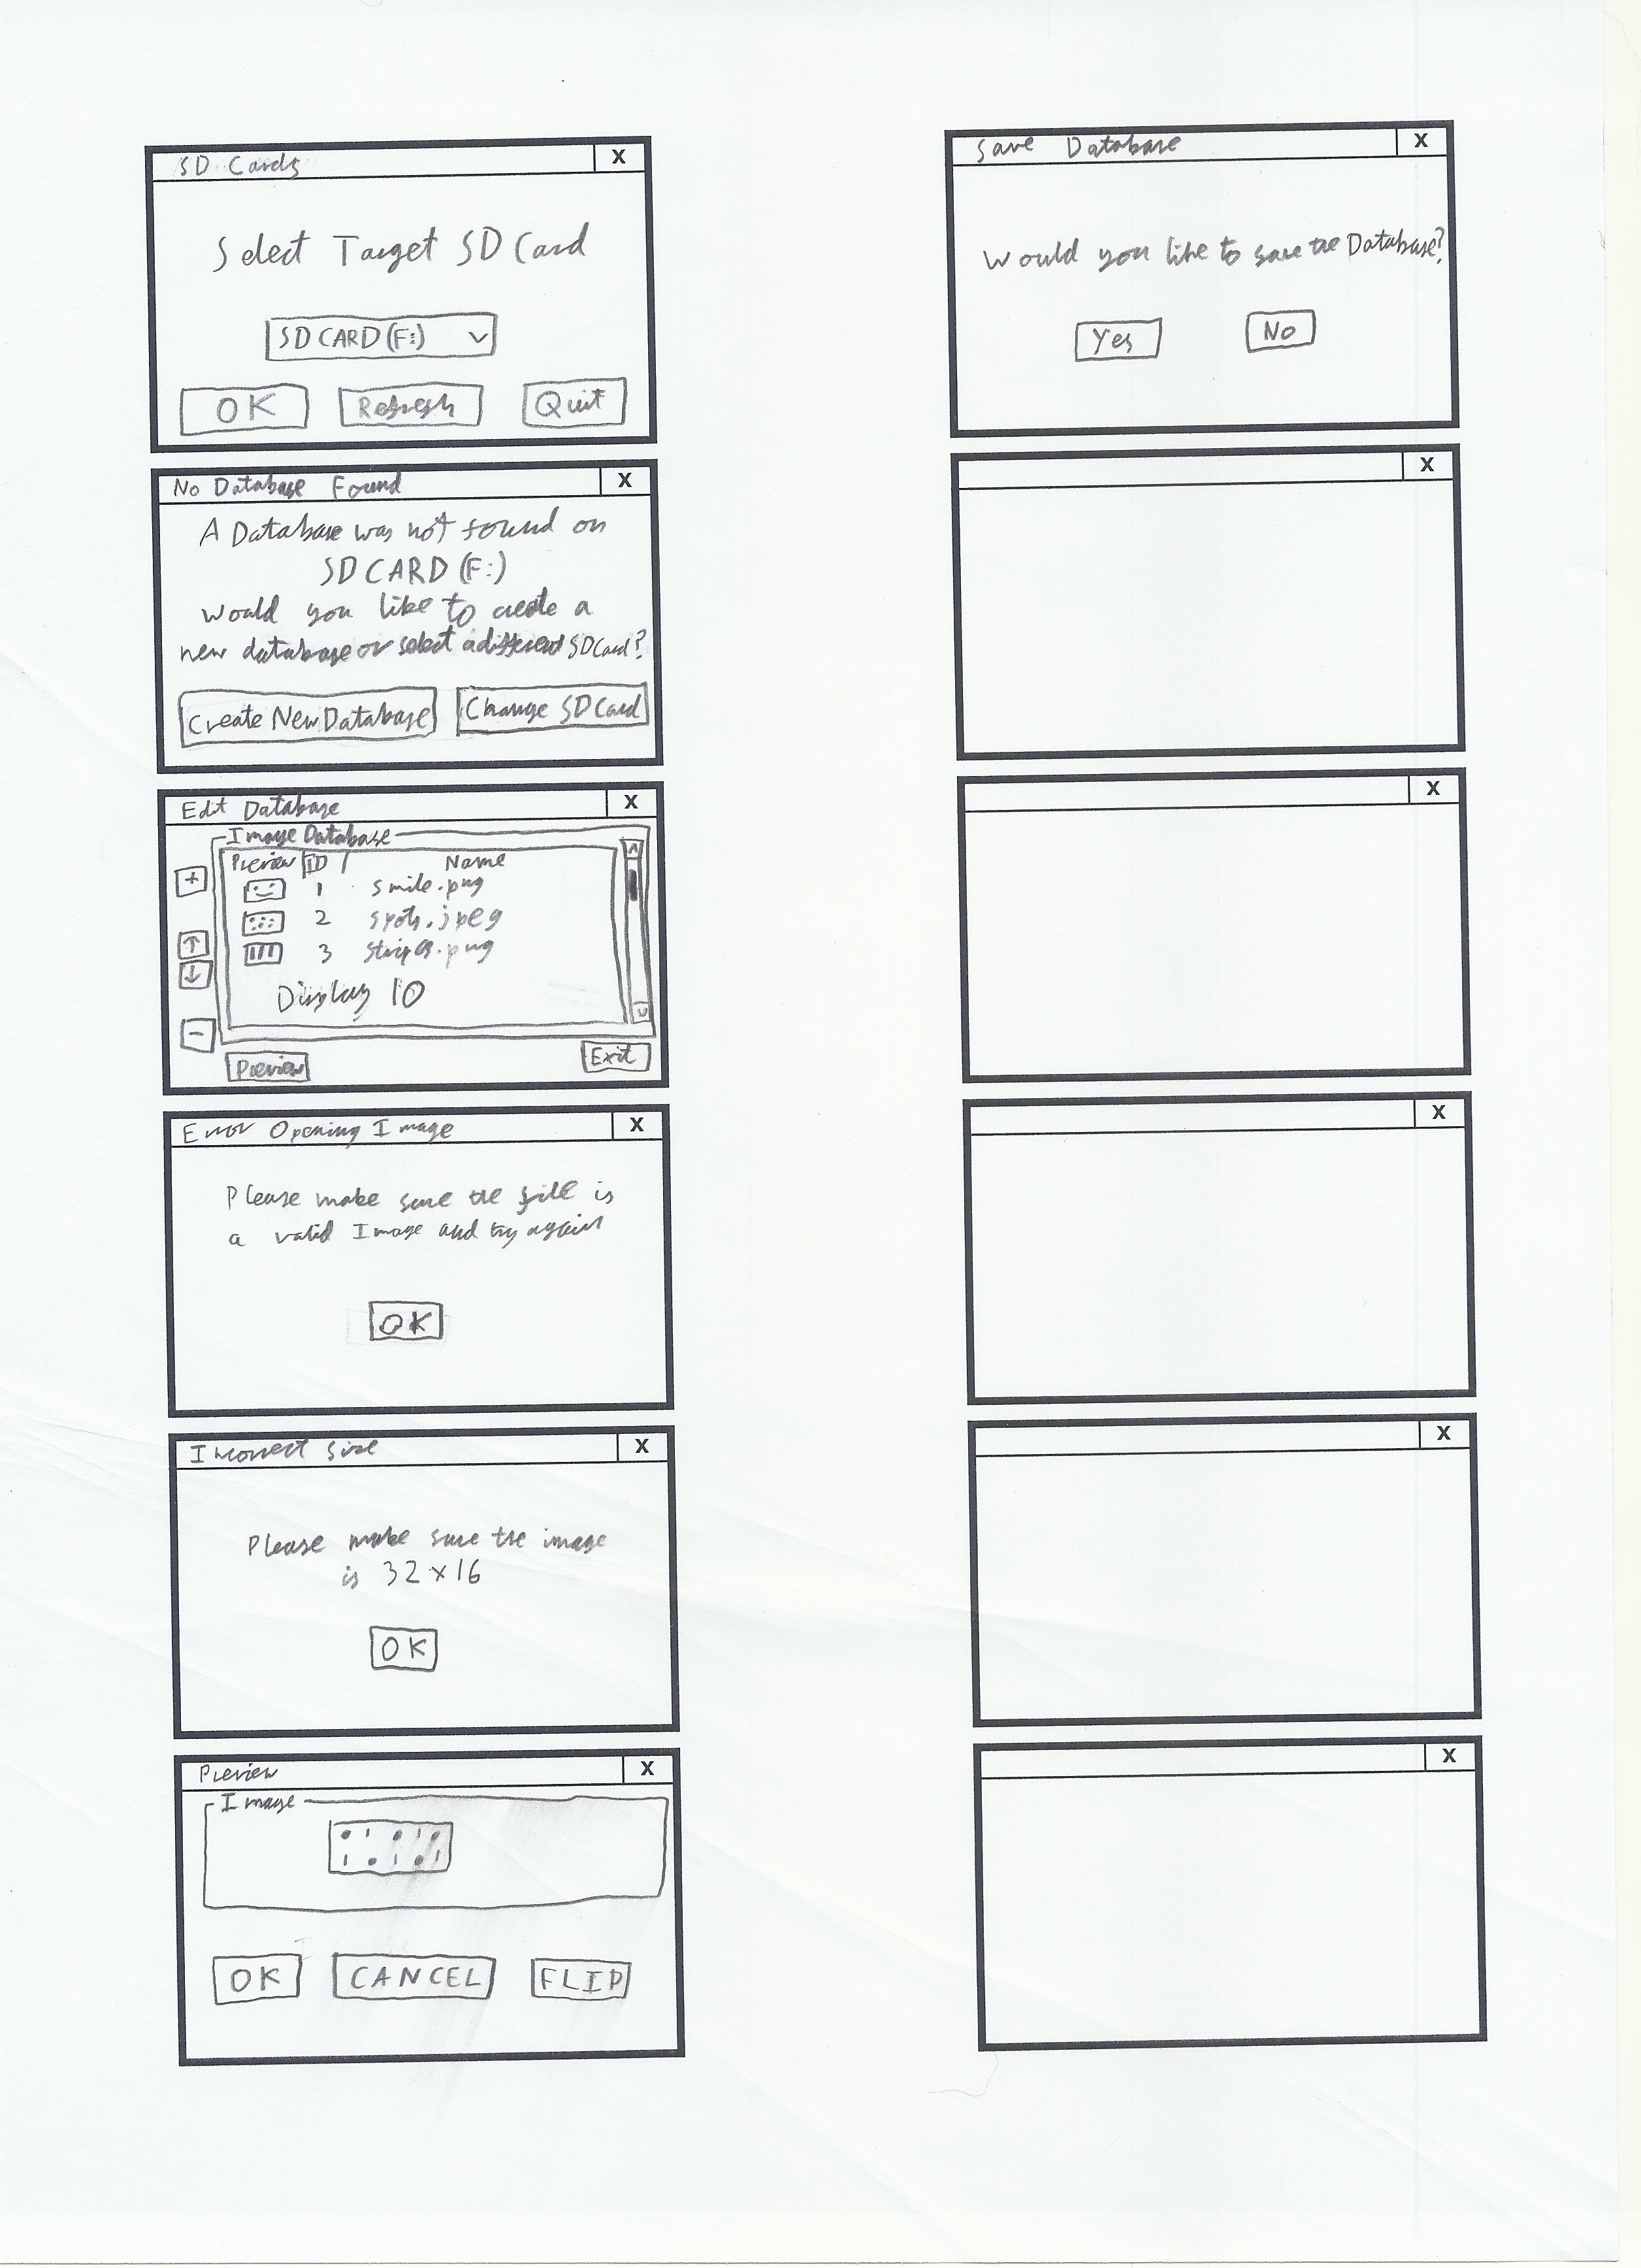 SD Cards X
Select Target SD Card
SD CARD (F:)
OK Refresh Quit
No Database Found X
A Database was not found on
SD CARD (F:)
would you like to create a
new database or select a different SD Card?
Create New Database Change SD Card
Edit Database X
Image Database
Preview ID Name
+
1 smile.png
2 spots.jpeg
↑
3 stripes.png
↓
Display 10
-
Preview Exit
Error Opening Image X
Please make sure the file is
a valid Image and try again
OK
Incorrect Size X
Please make sure the image
is 32x16
OK
Preview X
Image
OK CANCEL FLIP
Save Database X
Would you like to save the Database?
Yes No
X
X
X
X
X